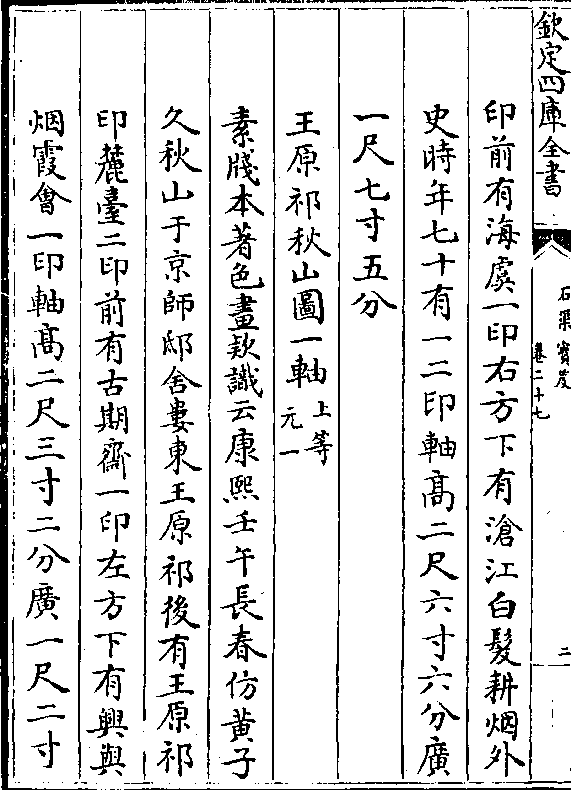 欽定四庫全書
石渠寶笈
卷二十七
二
印前有海虞一印右方下有滄江白髮耕烟外
史時年七十有一二印軸髙二尺六寸六分廣
一尺七寸五分
王原祁秋山圖一軸上等
元一
素牋本著色畫欵識云康熙壬午長春仿黄子
久秋山于京師邸舍婁東王原祁後有王原祁
印麓臺二印前有古期齋一印左方下有興與
烟霞會一印軸髙二尺三寸二分廣一尺二寸